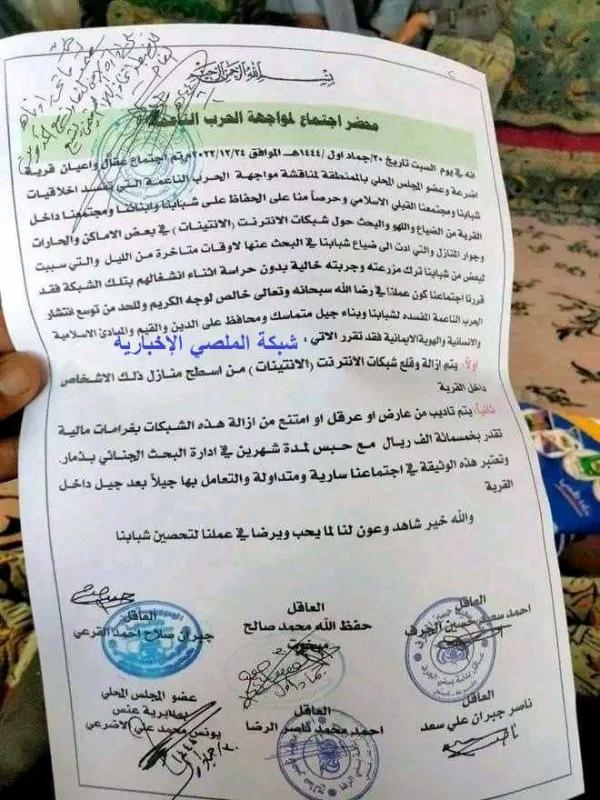 بسم الله الرحمن الرحيم
محضر اجتماع لمواجهة الحرب الناعمة
انه في يوم السبت تاريخ ٣٠/جماد اول /١٤٤٤هـ الموافق ٢٠٢٢/١٢/٢٤م تم اجتماع عقال واعيان قرية
اضرعة وعضو المجلس المحلي بالمنطقة لمناقشة مواجهة الحرب الناعمة التي تفسد اخلاقيات
شبابنا ومجتمعنا القبلي الاسلامي وحرصاً منا على الحفاظ على شبابنا وابنائنا ومجتمعنا داخل
القرية من الضياع واللهو والبحث حول شبكات الانترنت (الانتينات) في بعض الاماكن والحارات
وجوار المنازل والتي ادت الى ضياع شبابنا في البحث عنها لاوقات متاخرة من الليل والتي سببت
لبعض من شبابنا ترك مزرعته وجربته خالية بدون حراسة اثناء انشغالهم بتلك الشبكة فقد
قررنا اجتماعنا كون عملنا في رضا الله سبحانه وتعالى خالص لوجه الكريم وللحد من توسع انتشار
الحرب الناعمة المفسده لشبابنا وبناء جيل متماسك ومحافظ على الدين والقيم والمبادئ الاسلامية
والانسانية والهوية الايمانية فقد تقرر الاتي :
شبكة الملصي الإخبارية
اولاً: يتم ازالة وقلع شبكات الانترنت (الانتينات) من اسطح منازل ذلك الاشخاص
داخل القرية
ثانياً: يتم تاديب من عارض او عرقل او امتنع من ازالة هذه الشبكات بغرامات مالية
تقدر بخمسمائة الف ريال مع حبس لمدة شهرين في ادارة البحث الجنائي بذمار.
وتعتبر هذه الوثيقة في اجتماعنا سارية ومتداولة والتعامل بها جيلاً بعد جيل داخل
القرية
والله خير شاهد وعون لنا لما يحب ويرضا في عملنا لتحصين شبابنا
العاقل
احمد سعد حسين الجرف
العاقل
حفظ الله محمد صالح
العاقل
جبران صلاح احمد القرعي
العاقل
ناصر جبران علي سعد
العاقل
احمد محمد ناصر الرضا
عضو المجلس المحلي
بمديرية عنس
يونس محمد علي الاضرعي